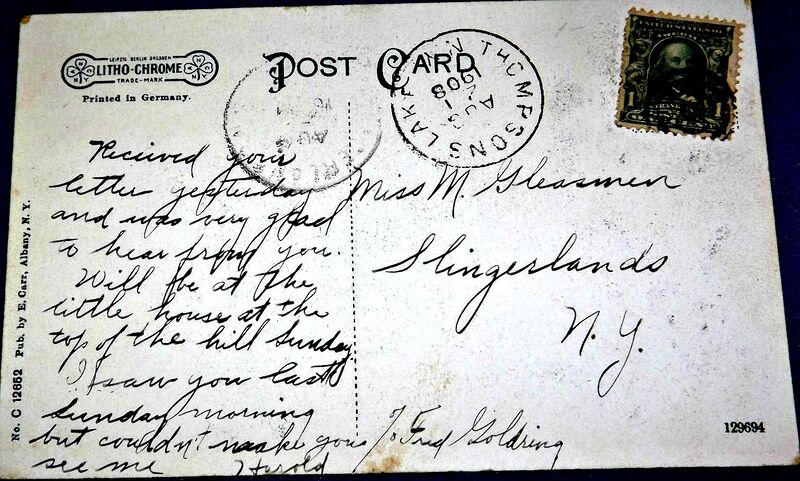 LEIPZIG BERLIN DRESDEN
LITHO-CHROME
TRADE-MARK
Printed in Germany.
POST CARD
THOMPSONS LAKE N.Y.
1908
AUG
A
UNITED STATES OF
1
1
FRANKLIN
Received your
letter yesterday
and was very glad
to hear from you.
Will be at the
little house at the
top of the hill Sunday.
I saw you last
Sunday morning
but couldn't make you
see me Harold
Miss M. Gleasmen
Slingerlands
N.Y.
c/o Fred Goldring
No. C 12652 Pub. by E. Carr, Albany, N. Y.
129694